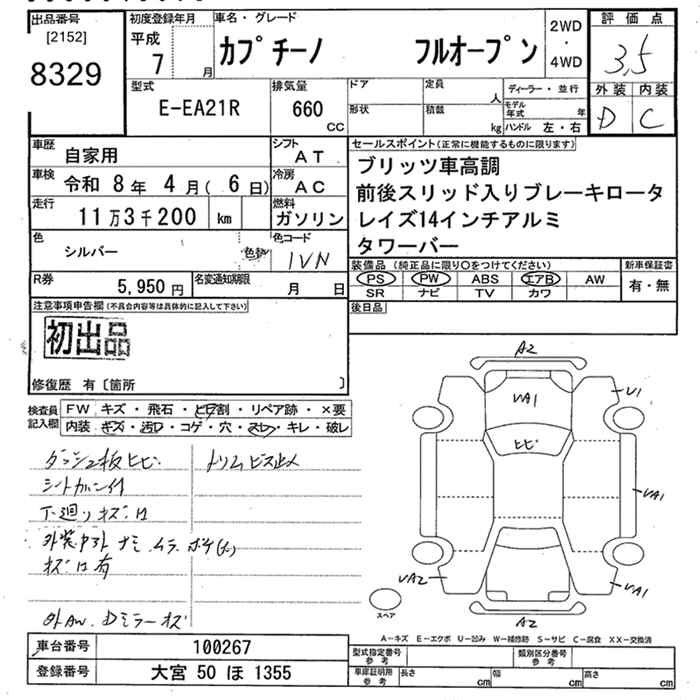 出品番号
[2152]
8329
初度登録年月
平成
7 月
車名・グレード
カプチーノ フルオープン
2WD
・
4WD
評価点
3,5
外装 内装
D C
型式
E-EA21R
排気量
660
cc
ドア
形状
定員
人
積載
kg
ディーラー・並行
モデル年式 年
ハンドル 左・右
車歴
自家用
シフト
AT
車検
令和 8年 4月( 6日)
冷房
AC
走行
11万3千200 km
燃料
ガソリン
色
シルバー
色替
色コード
1VN
R券
5,950 円
名変通知期限
月 日
セールスポイント(正常に機能するものに限ります)
ブリッツ車高調
前後スリッド入りブレーキロータ
レイズ14インチアルミ
タワーバー
装備品 (純正品に限り○をつけてください)
PS PW ABS エアB AW
SR ナビ TV カワ
新車保証書
有・無
後日品
注意事項申告欄(不具合内容等は具体的に記入して下さい)
初出品
修復歴 有〔箇所 〕
検査員記入欄
FW キズ・飛石・ヒビ割・リペア跡・×要
内装 キズ・汚レ・コゲ・穴・スレ・キレ・破レ
ダッシュ板ヒビ トリムビス止メ
シートカバー付
下廻りキズ
キズ 有
外AW. Dミラーキズ
車台番号 100267
登録番号 大宮 50 ほ 1355
A2
VA1
U1
ヒビ
VA1
VA2
VA1
A2
スペア
A-キズ E-エクボ U-凹み W-補修跡 S-サビ C-腐食 XX-交換済
型式指定番号
参考
類別区分番号
参考
車庫証明用
参考
長さ cm 幅 cm 高さ cm